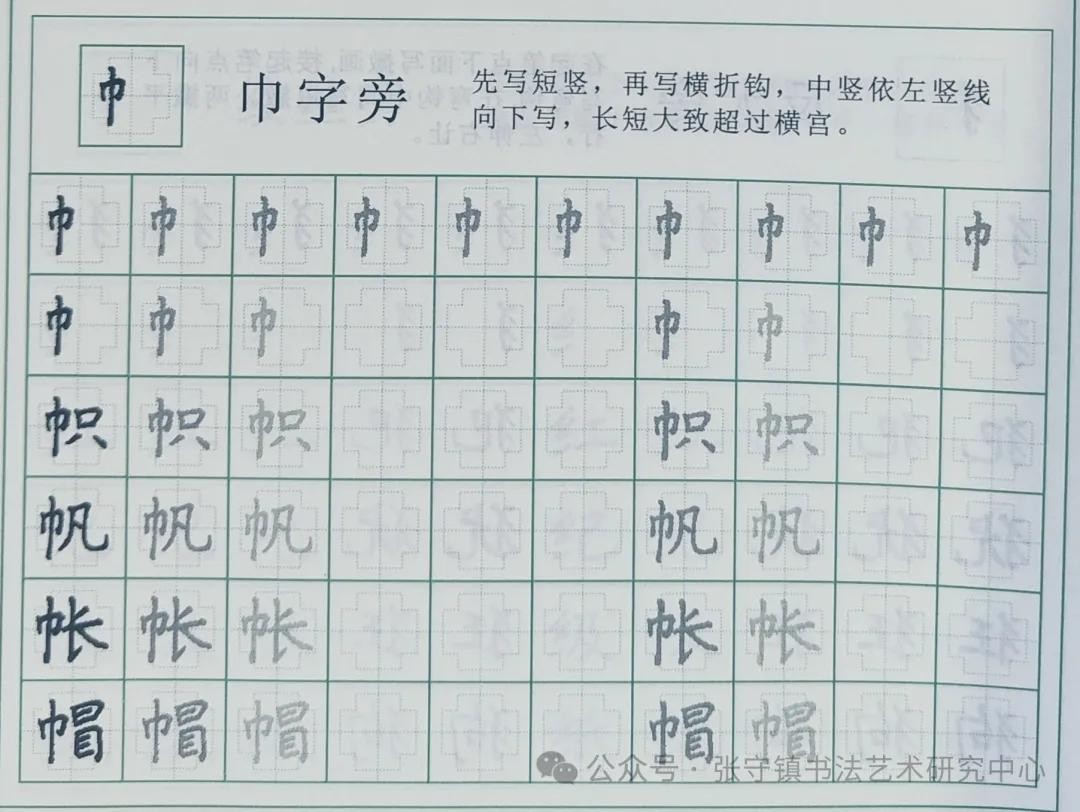 巾 巾字旁 先写短竖，再写横折钩，中竖依左竖线
向下写，长短大致超过横宫。
巾 巾 巾 巾 巾 巾 巾 巾 巾 巾
巾 巾 巾 巾 巾
帜 帜 帜 帜 帜
帆 帆 帆 帆 帆
帐 帐 帐 帐 帐
帽 帽 帽 帽 帽
公众号·张守镇书法艺术研究中心